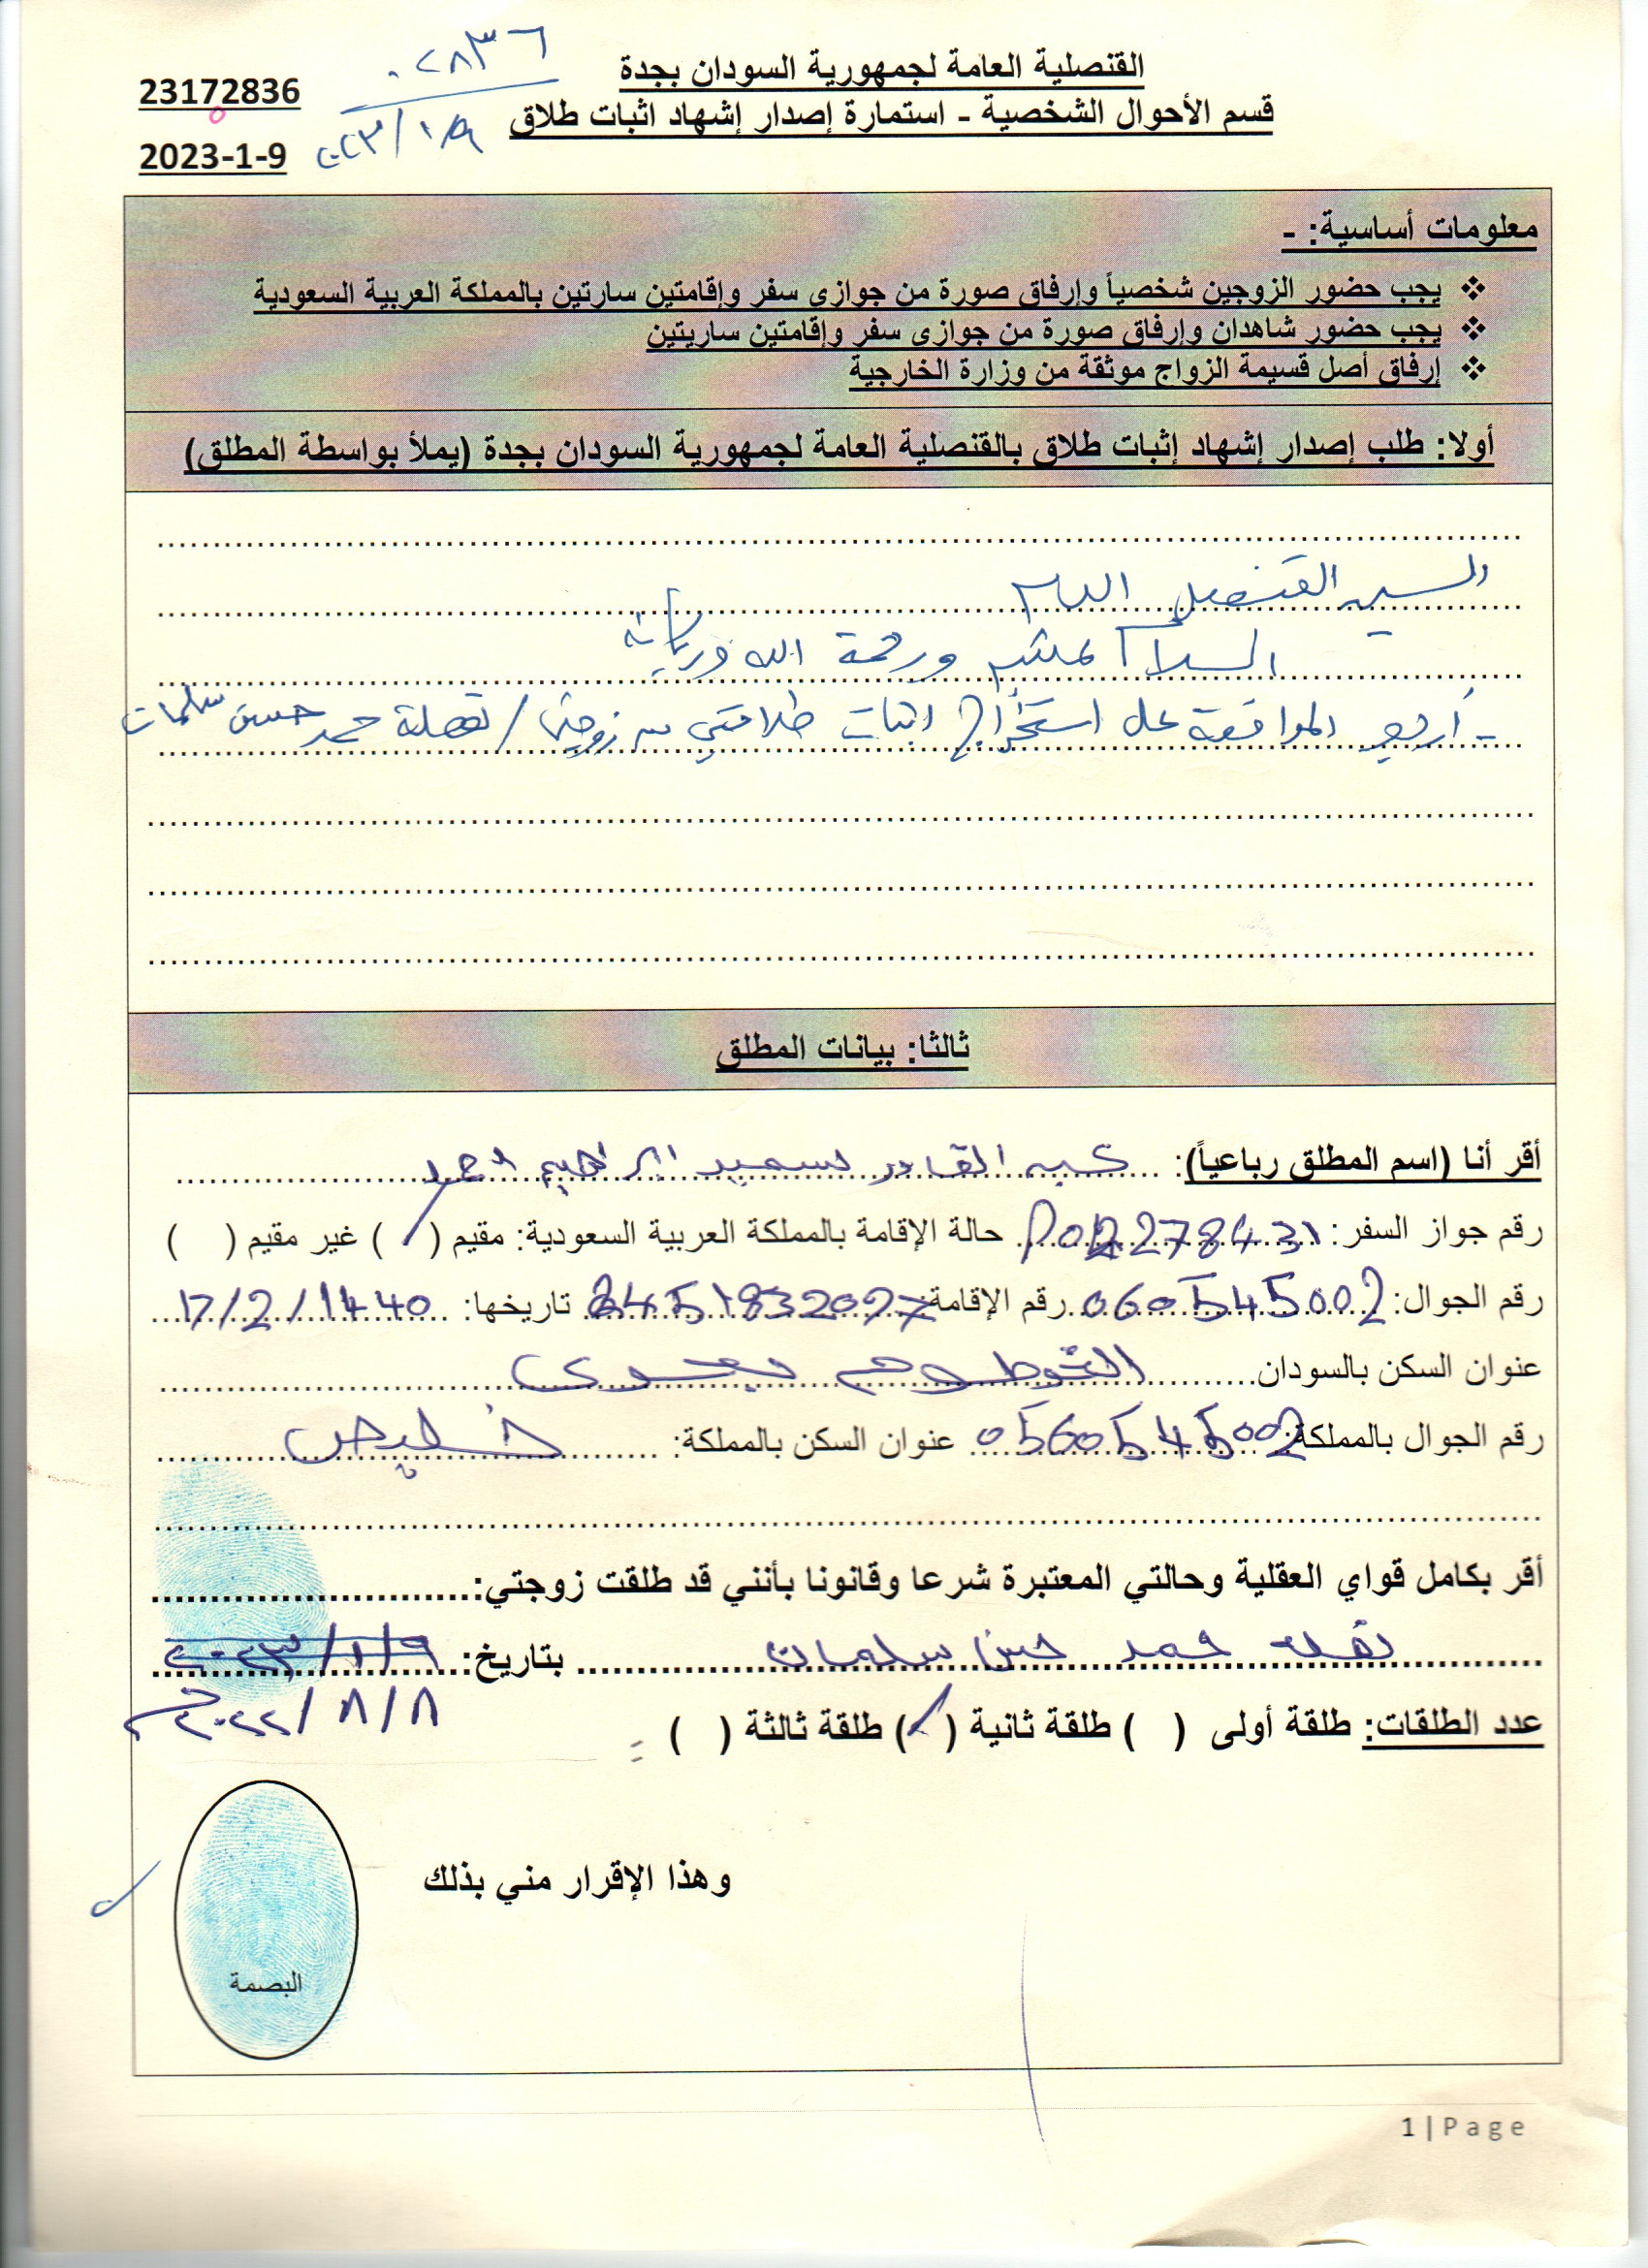 القنصلية العامة لجمهورية السودان بجدة
قسم الأحوال الشخصية - استمارة إصدار إشهاد اثبات طلاق
23172836
٠٢٨٣٦
2023-1-9
٢٠٢٣/١/٩
معلومات أساسية: -
❖ يجب حضور الزوجين شخصياً وإرفاق صورة من جوازي سفر وإقامتين سارتين بالمملكة العربية السعودية
❖ يجب حضور شاهدان وإرفاق صورة من جوازى سفر وإقامتين ساريتين
❖ إرفاق أصل قسيمة الزواج موثقة من وزارة الخارجية
أولا: طلب إصدار إشهاد إثبات طلاق بالقنصلية العامة لجمهورية السودان بجدة (يملأ بواسطة المطلق)
السيد القنصل العام
السلام عليكم ورحمة الله وبركاته
- أرجو الموافقة على استخراج اثبات طلاقي من زوجتي / نهلة محمد حسن سلمان
ثالثا: بيانات المطلق
أقر أنا (اسم المطلق رباعياً): عبد القادر سعيد ابراهيم احمد
رقم جواز السفر: حالة الإقامة بالمملكة العربية السعودية: مقيم (/) غير مقيم ( )
رقم الجوال: 060545002 رقم الإقامة: تاريخها: 17/2/1440
عنوان السكن بالسودان الخرطوم بحرى
رقم الجوال بالمملكة: 0560545002 عنوان السكن بالمملكة: خليص
أقر بكامل قواي العقلية وحالتي المعتبرة شرعا وقانونا بأنني قد طلقت زوجتي:
نهله محمد حسن سلمان بتاريخ: ٢٠٢٣/١/٩
٢٠٢٢/٨/٨م
عدد الطلقات: طلقة أولى ( ) طلقة ثانية (✓) طلقة ثالثة ( )
وهذا الإقرار مني بذلك
البصمة
1 | Page